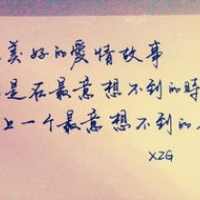 美好的爱情故事
是在最意想不到的時
上一个最意想不到的
XZG